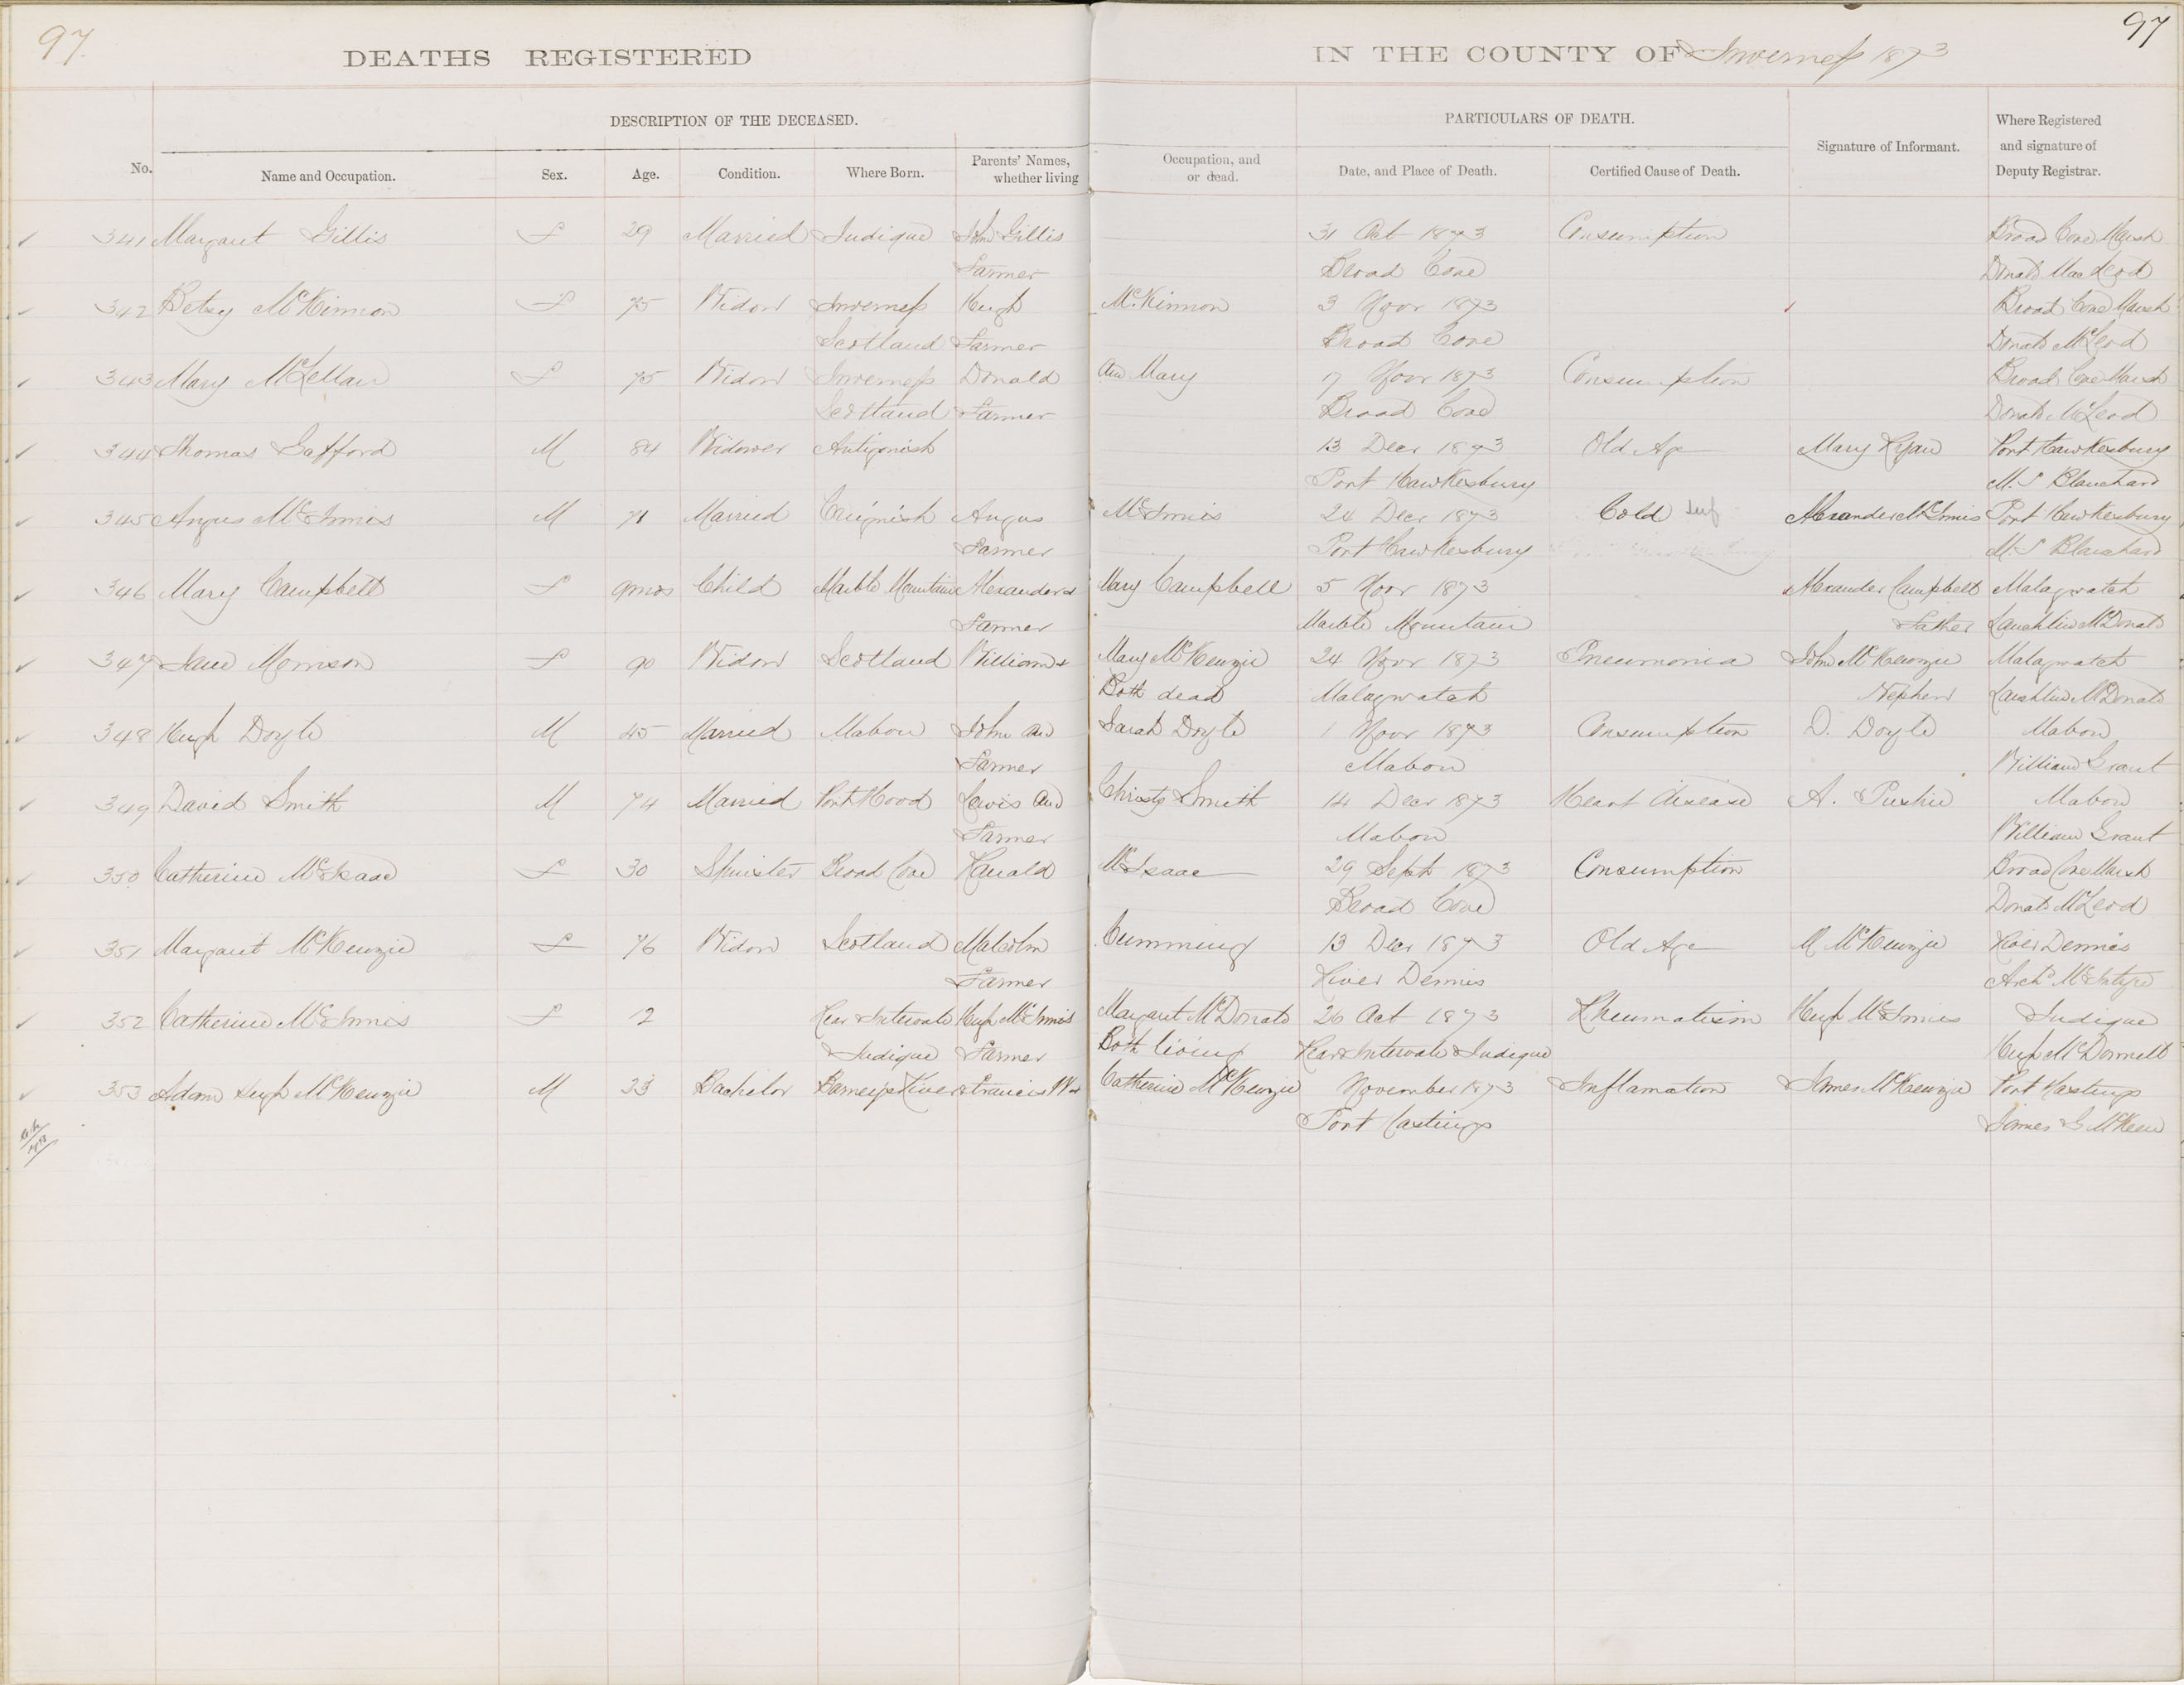 97. 97
DEATHS REGISTERED IN THE COUNTY OF Inverness 1873
DESCRIPTION OF THE DECEASED. PARTICULARS OF DEATH. Where Registered
and signature of
Deputy Registrar.
No. Name and Occupation. Sex. Age. Condition. Where Born. Parents' Names, whether living Occupation, and or dead. Date, and Place of Death. Certified Cause of Death. Signature of Informant.
341 Margaret Gillis F 29 Married Judique John Gillis 31 Oct 1873 Consumption Broad Cove Marsh
Farmer Broad Cove Donald MacLeod
342 Betsy McKinnon F 75 Widow Inverness Hugh McKinnon 3 Novr 1873 Broad Cove Marsh
Scotland Farmer Broad Cove Donald McLeod
343 Mary McLellan F 75 Widow Inverness Donald and Mary 17 Novr 1873 Consumption Broad Cove Marsh
Scotland Farmer Broad Cove Donald McLeod
344 Thomas Gafford M 84 Widower Antigonish 13 Decr 1873 Old Age Mary Ryan Port Hawkesbury
Port Hawkesbury M. S Blanchard
345 Angus McInnis M 71 Married Creignish Angus McInnis 24 Decr 1873 Cold Alexander McInnis Port Hawkesbury
Farmer Port Hawkesbury M. S Blanchard
346 Mary Campbell F 9mos Child Marble Mountain Alexander & Mary Campbell 5 Novr 1873 Alexander Campbell Malagwatch
Farmer Marble Mountain Father Lauchlin McDonald
347 Jane Morrison F 90 Widow Scotland William & Mary McKenzie 24 Novr 1873 Pneumonia John McKenzie Malagwatch
Both dead Malagwatch Nephew Lauchlin McDonald
348 Hugh Doyle M 45 Married Mabou John and Sarah Doyle 1 Novr 1873 Consumption D. Doyle Mabou
Farmer Mabou William Grant
349 David Smith M 74 Married Port Hood Lewis and Christy Smith 14 Decr 1873 Heart disease A. Mabou
Farmer Mabou William Grant
350 Catherine McIsaac F 30 Spinster Broad Cove Ranald McIsaac 29 Sept 1873 Consumption Broad Cove Marsh
Broad Cove Donald McLeod
351 Margaret McKenzie F 76 Widow Scotland Malcolm Cumming 13 Decr 1873 Old Age M McKenzie River Dennis
Farmer River Dennis Archd McIntyre
352 Catherine McInnis F 2 Rear Intervale Hugh McInnis Margaret McDonald 26 Oct 1873 Rheumatism Hugh McInnes Judique
Judique Farmer Both living Rear Intervale Judique Hugh McDonnell
353 Adam Hugh McKenzie M 23 Bachelor Barneys River Francis W & Catherine McKenzie November 1873 Inflamation James McKenzie Port Hastings
Port Hastings James G McKeen